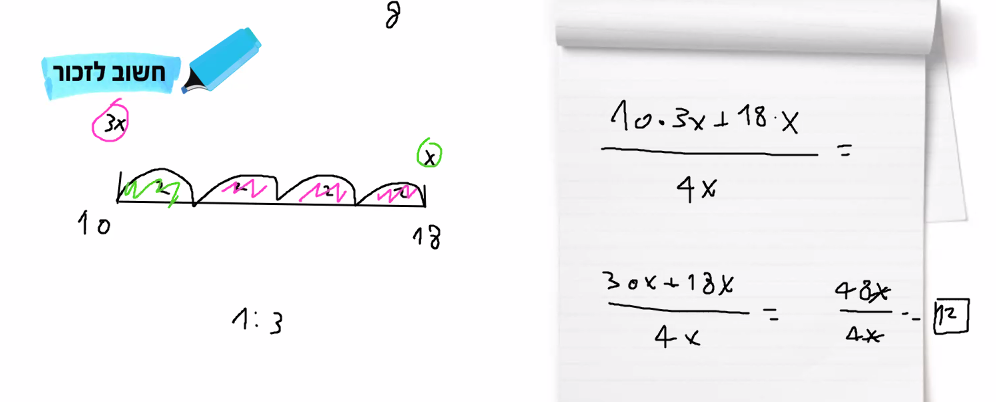 8
חשוב לזכור
3x
x
2 2 2 2
10
18
1:3
10·3x+18·x
=
4x
30x+18x
=
4x
48x
=
4x
12